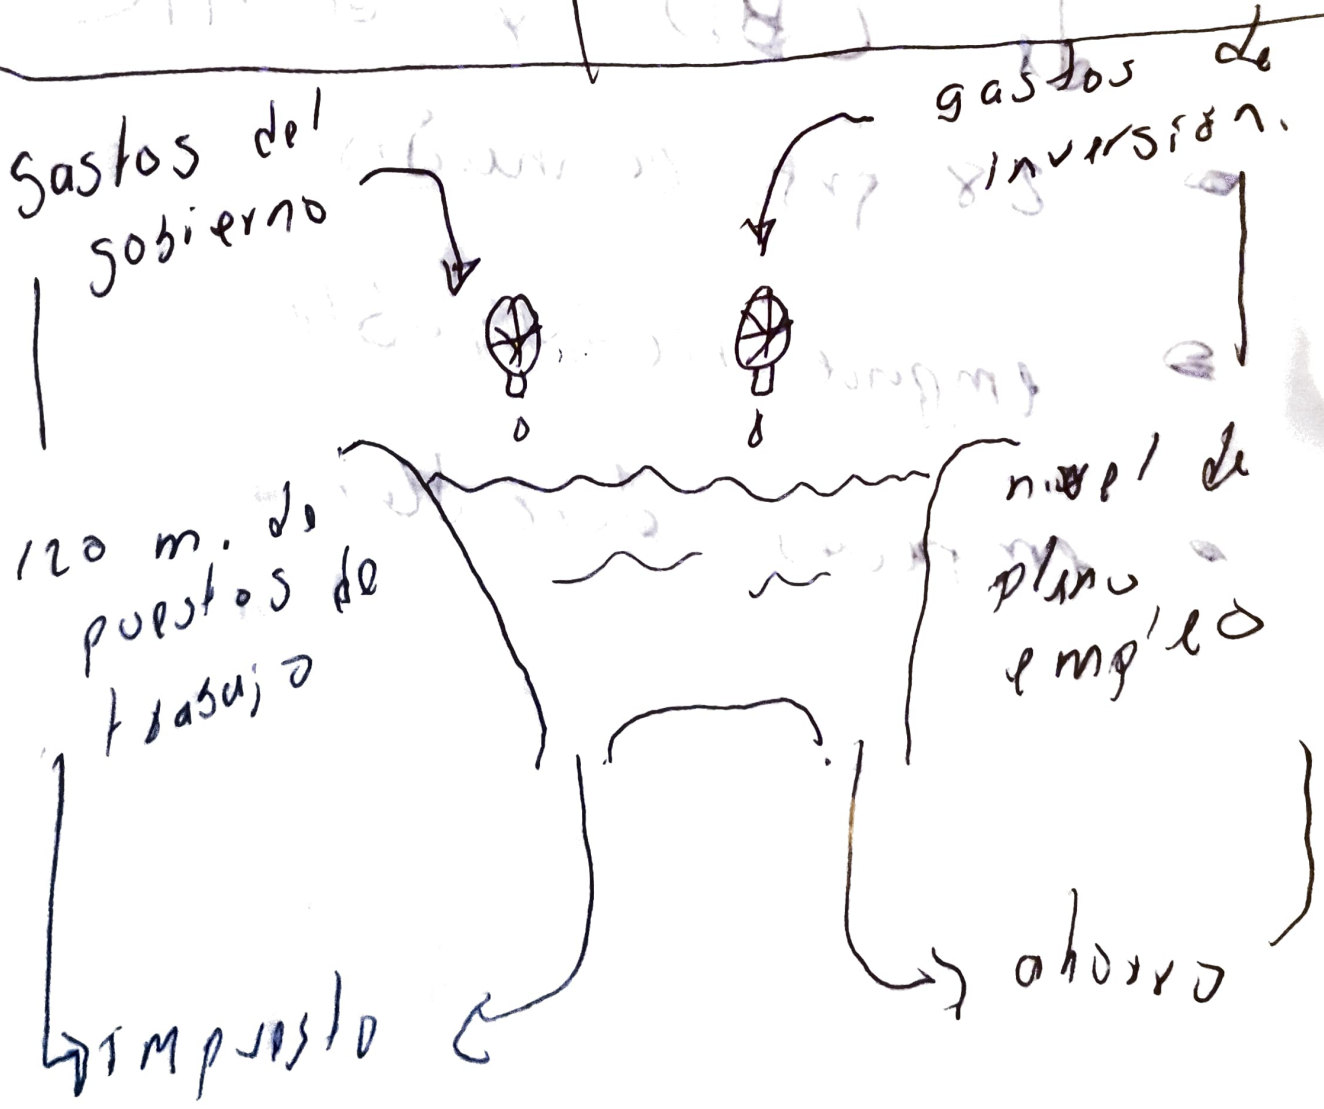 gastos del
gobierno
gastos de
inversión.
120 m. de
puestos de
trabajo
nivel de
pleno
empleo
impuesto
ahorro